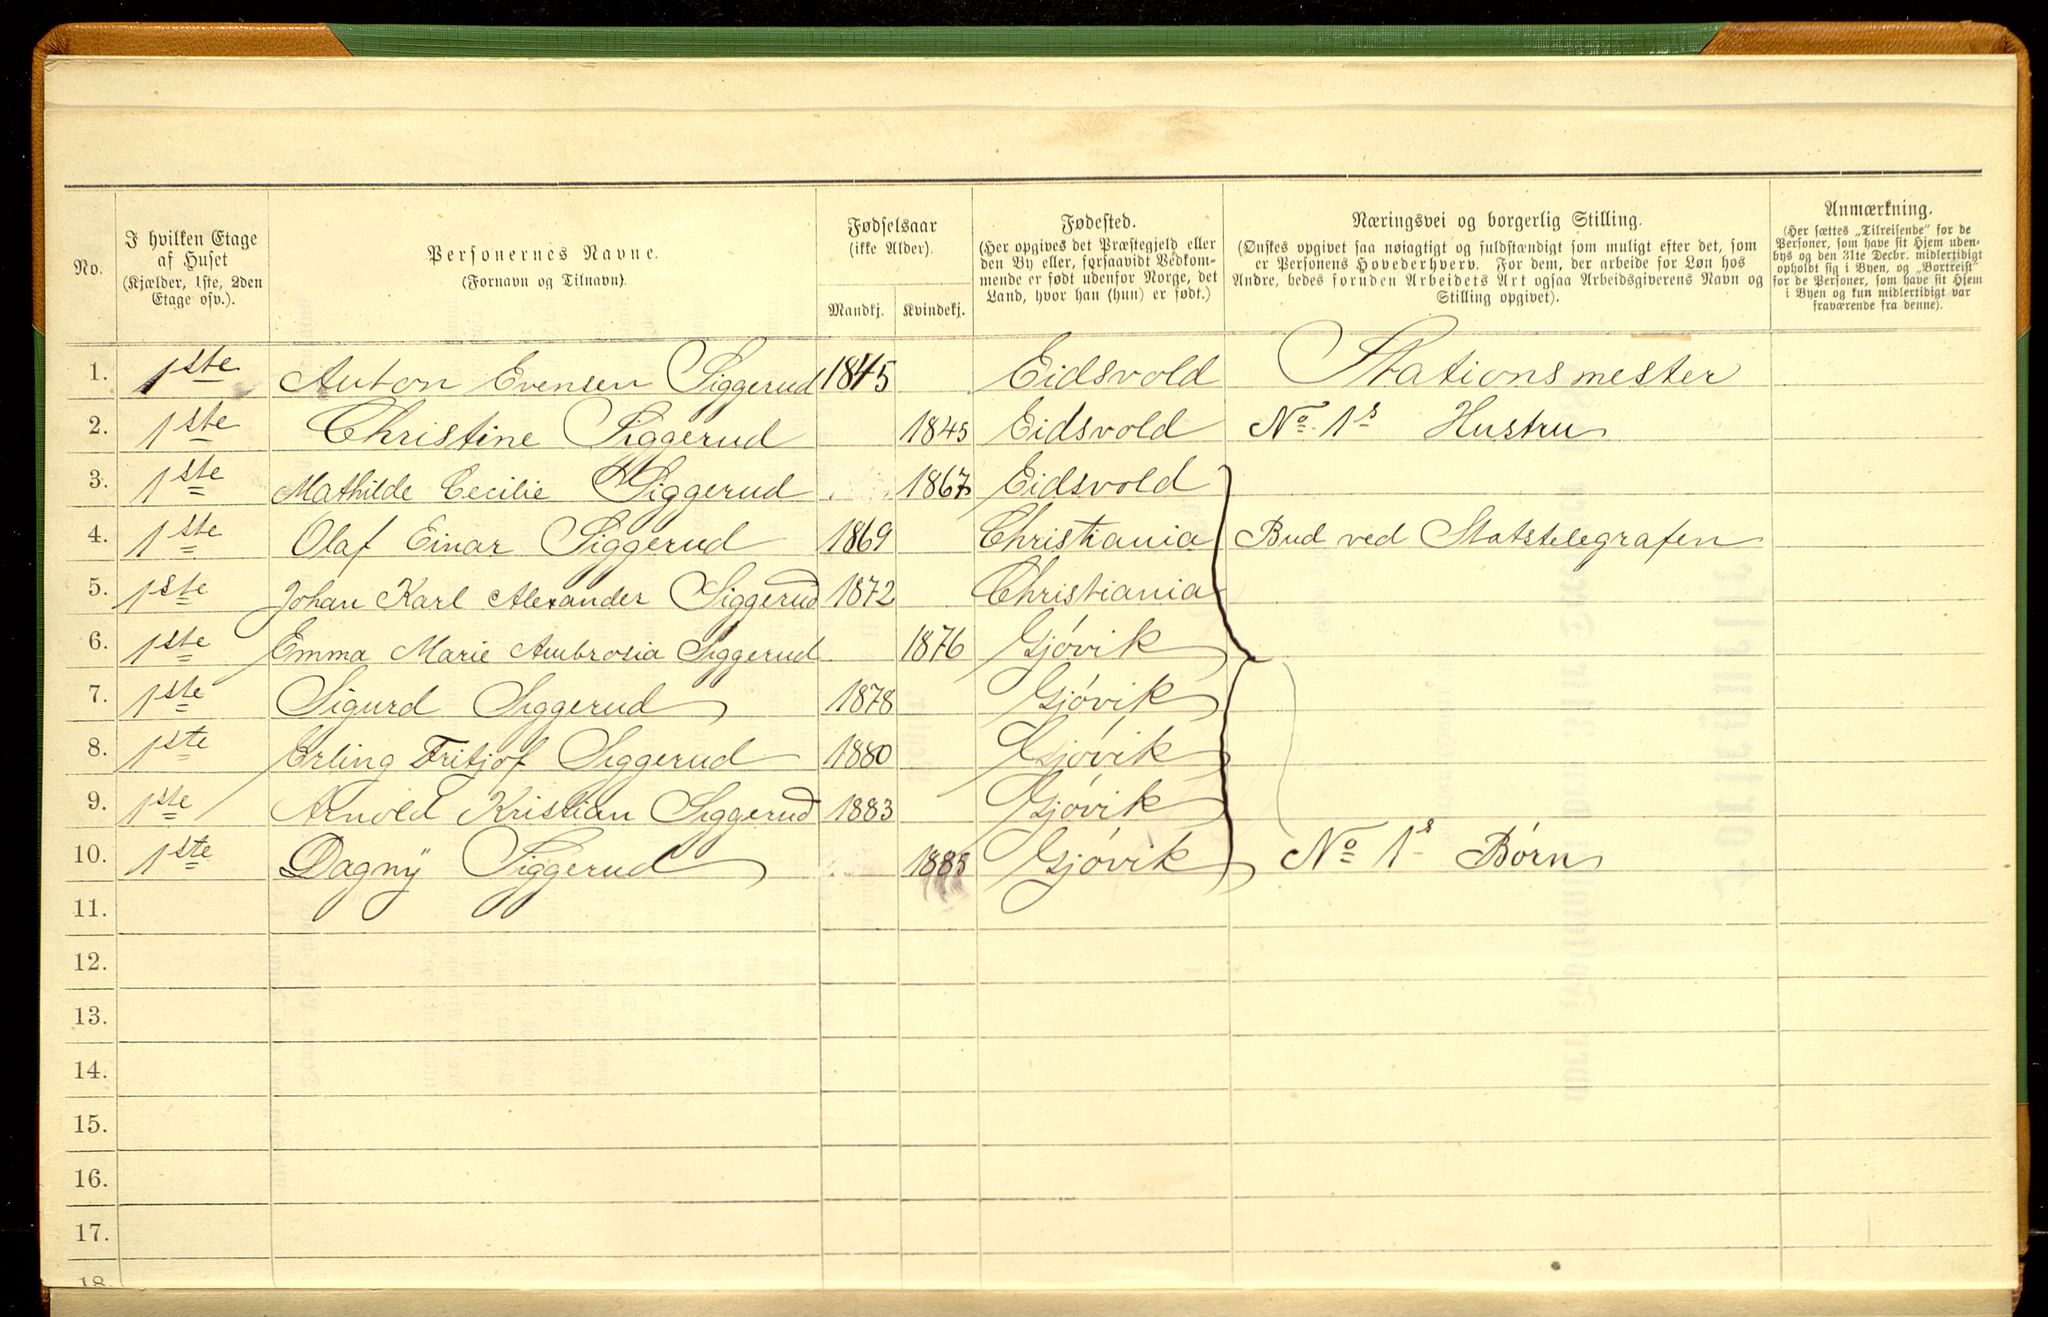 No.
I hvilken Etage
af Huset
(Kjælder, 1ste, 2den
Etage osv.).
Personernes Navne.
(Fornavn og Tilnavn).
Fødselsaar
(ikke Alder).
Mandkj. Kvindekj.
Fødested.
(Her opgives det Præstegjeld eller
den By eller, forsaavidt Vedkom-
mende er født udenfor Norge, det
Land, hvor han (hun) er født.)
Næringsvei og borgerlig Stilling.
(Ønskes opgivet saa nøiagtigt og fuldstændigt som muligt efter det, som
er Personens Hovederhverv. For dem, der arbeide for Løn hos
Andre, bedes foruden Arbeidets Art ogsaa Arbeidsgiverens Navn og
Stilling opgivet).
Anmærkning.
(Her sættes „Tilreisende“ for de
Personer, som have sit Hjem uden-
bys og den 31te Decbr. midlertidigt
opholdt sig i Byen, og „Bortreist“
for de Personer, som have sit Hjem
i Byen og kun midlertidigt var
fraværende fra denne).
1. 1ste Anton Evensen Siggerud 1845 Eidsvold Stationsmester
2. 1ste Christine Siggerud 1845 Eidsvold No. 1s Hustru
3. 1ste Mathilde Cecilie Siggerud 1867 Eidsvold
4. 1ste Olaf Einar Siggerud 1869 Christiania Bud ved Statstelegrafen
5. 1ste Johan Karl Alexander Siggerud 1872 Christiania
6. 1ste Emma Marie Ambrosia Siggerud 1876 Gjóvik
7. 1ste Sigurd Siggerud 1878 Gjóvik
8. 1ste Erling Fritjof Siggerud 1880 Gjóvik
9. 1ste Arnold Kristian Siggerud 1883 Gjóvik
10. 1ste Dagny Siggerud 1885 Gjóvik No 1s Bórn
11.
12.
13.
14.
15.
16.
17.
18